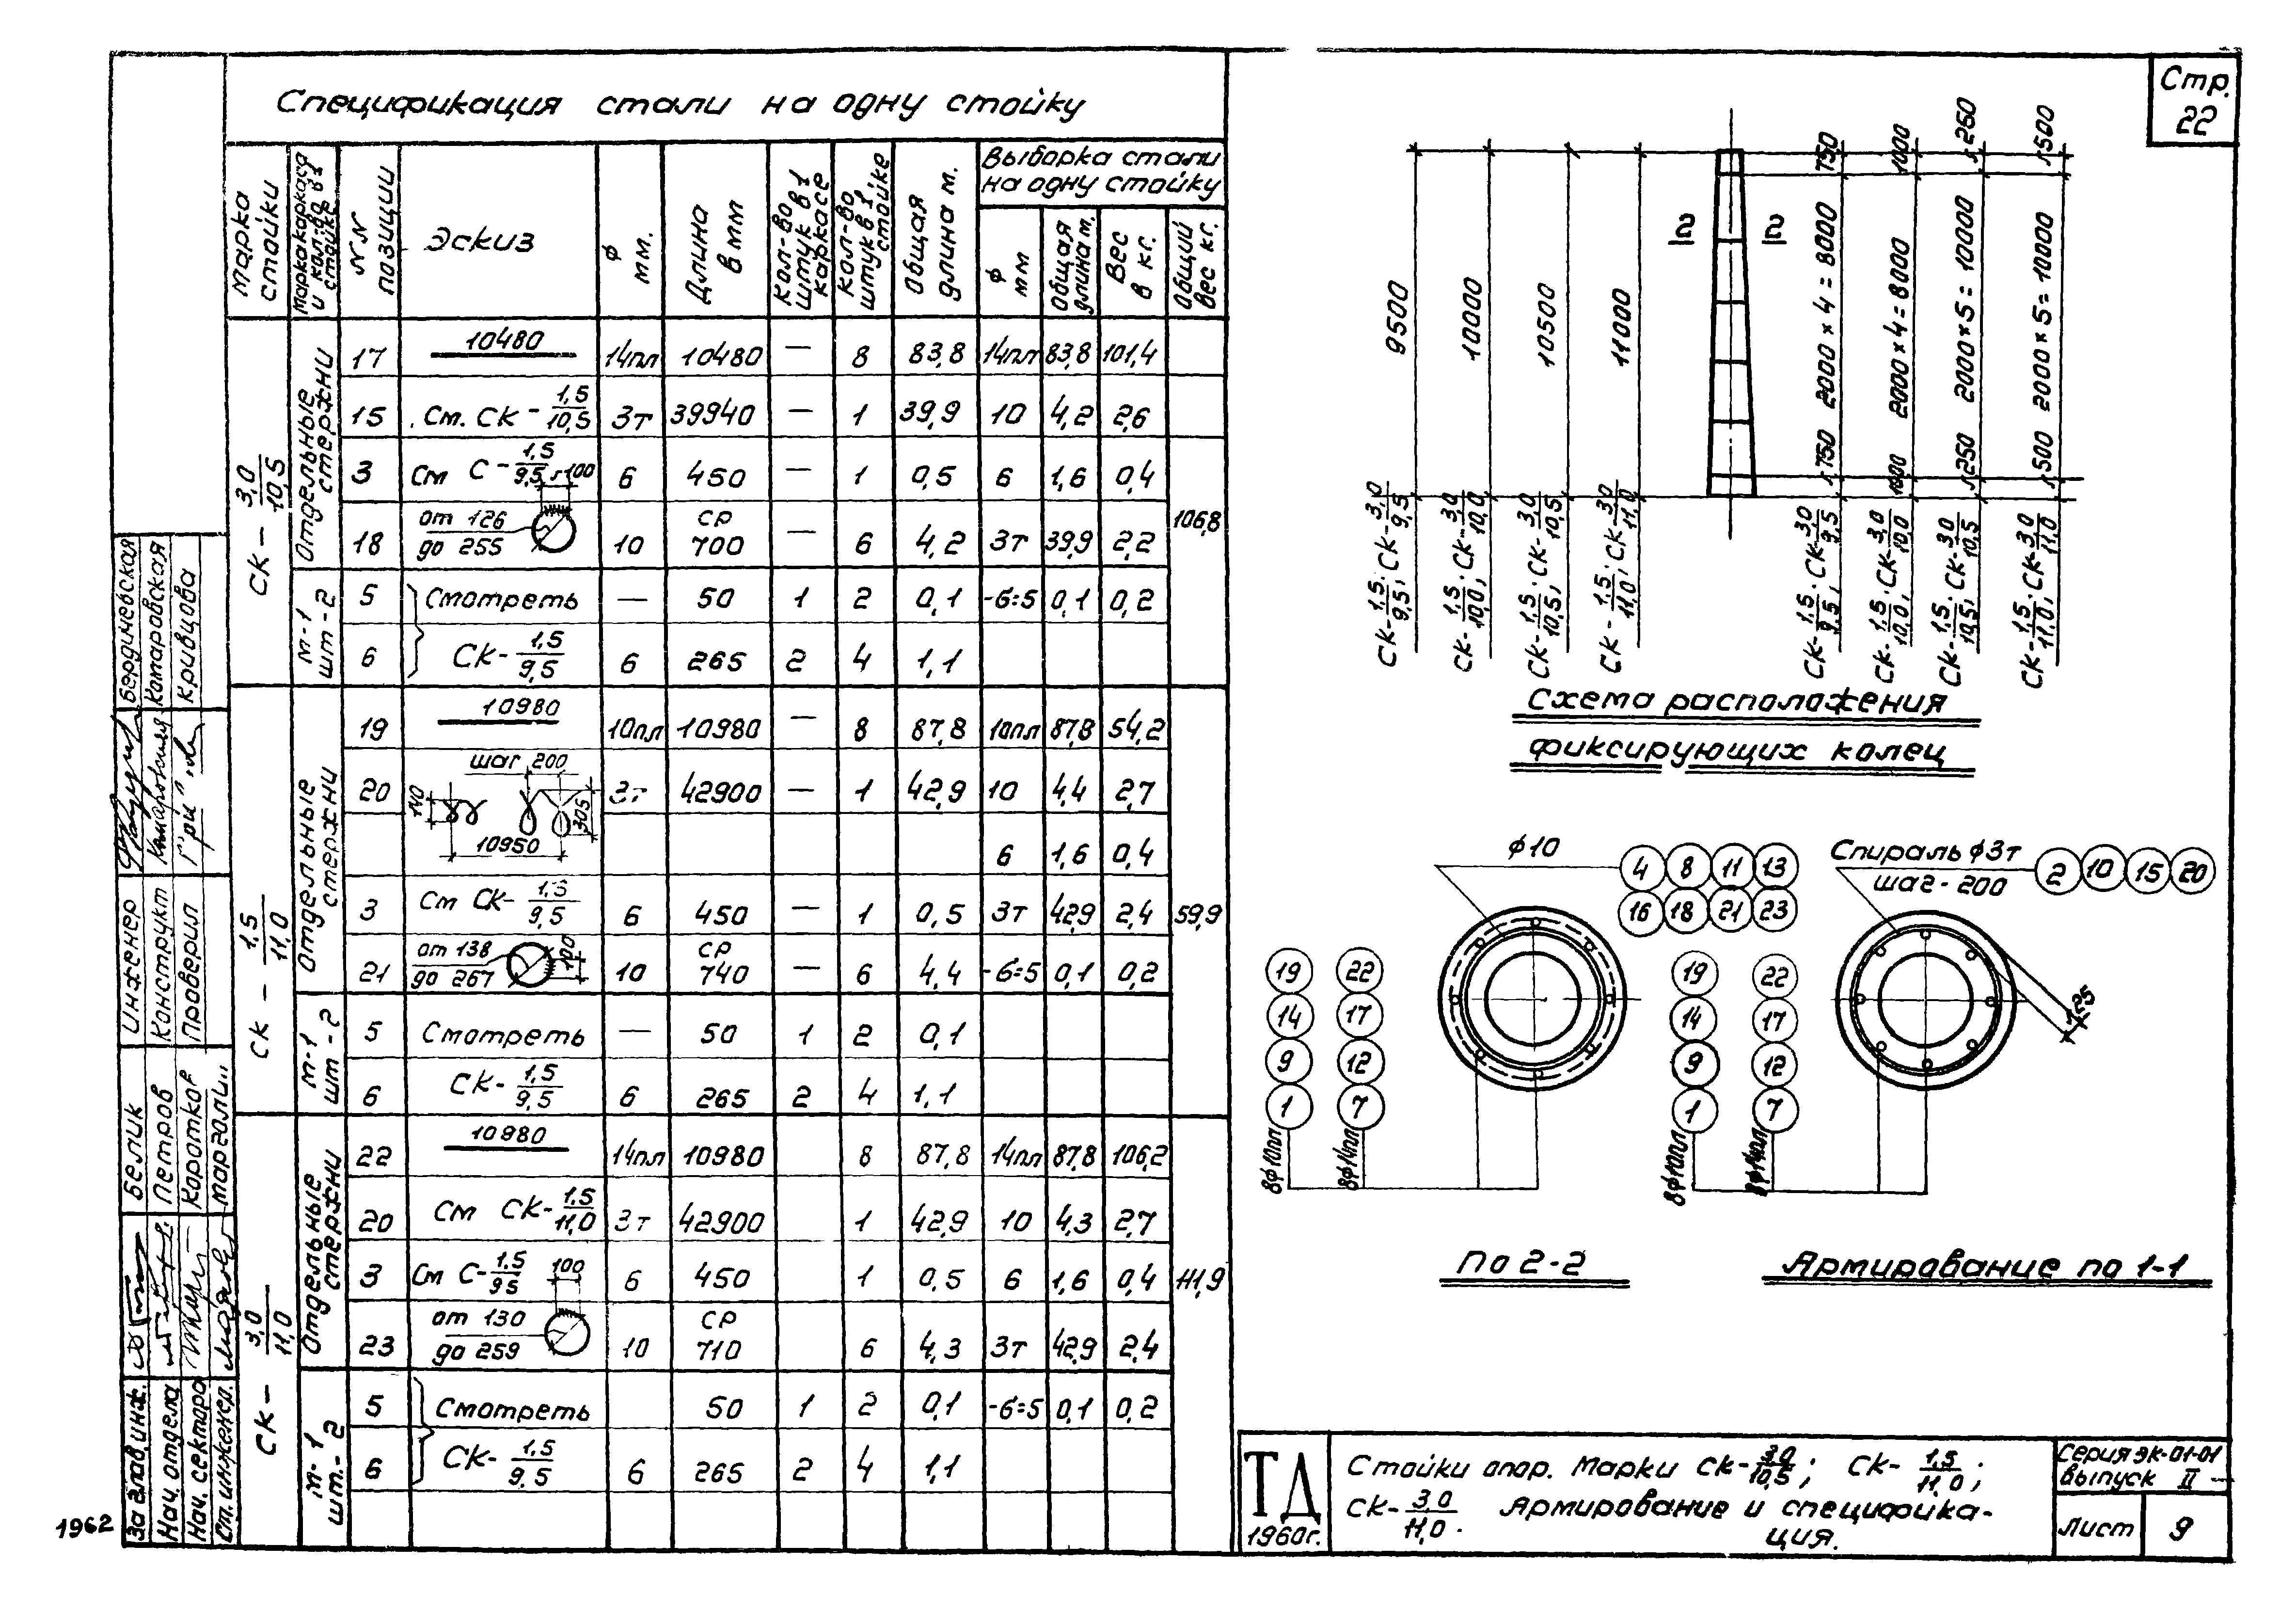 Стр.
22
Спецификация стали на одну стойку
Марка стойки
Марка каркаса и кол-во в 1 стойке
NN позиции
Эскиз
ф мм.
Длина в мм
Кол-во штук в 1 каркасе
Кол-во штук в 1 стойке
Общая длина м.
Выборка стали на одну стойку
ф мм
Общая длина м.
Вес в кг.
Общий вес кг.
СК - 3,0/10,5
Отдельные стержни
17 10480 14пл 10480 — 8 83,8 14пл 83,8 101,4
15 См. СК - 1,5/10,5 3т 39940 — 1 39,9 10 4,2 2,6
3 См С - 1,5/9,5 100 6 450 — 1 0,5 6 1,6 0,4
18 от 126 до 255 10 ср 700 — 6 4,2 3т 39,9 2,2
106,8
М-1 шт - 2
5 Смотреть — 50 1 2 0,1 -б=5 0,1 0,2
6 СК - 1,5/9,5 6 265 2 4 1,1
СК - 1,5/11,0
Отдельные стержни
19 10980 10пл 10980 — 8 87,8 10пл 87,8 54,2
20 шаг 200 110 305 10950 3т 42900 — 1 42,9 10 4,4 2,7
6 1,6 0,4
3 См СК- 1,5/9,5 6 450 — 1 0,5 3т 42,9 2,4
59,9
21 от 138 до 267 100 10 ср 740 — 6 4,4 -б=5 0,1 0,2
М-1 шт - 2
5 Смотреть — 50 1 2 0,1
6 СК- 1,5/9,5 6 265 2 4 1,1
СК - 3,0/11,0
Отдельные стержни
22 10980 14пл 10980 8 87,8 14пл 87,8 106,2
20 См СК- 1,5/11,0 3т 42900 1 42,9 10 4,3 2,7
3 См С- 1,5/9,5 100 6 450 1 0,5 6 1,6 0,4
111,9
23 от 130 до 259 10 ср 710 6 4,3 3т 42,9 2,4
М-1 шт.- 2
5 Смотреть 50 1 2 0,1 -б=5 0,1 0,2
6 СК- 1,5/9,5 6 265 2 4 1,1
9500
10000
10500
11000
2 2
750 2000 × 4 = 8000 750
1000 2000 × 4 = 8000 1000
250 2000 × 5 = 10000 250
500 2000 × 5 = 10000 500
СК- 1,5/9,5; СК- 3,0/9,5
СК- 1,5/10,0; СК- 3,0/10,0
СК- 1,5/10,5; СК- 3,0/10,5
СК- 1,5/11,0; СК- 3,0/11,0
СК- 1,5/9,5; СК- 3,0/9,5
СК- 1,5/10,0; СК- 3,0/10,0
СК- 1,5/10,5; СК- 3,0/10,5
СК- 1,5/11,0; СК- 3,0/11,0
Схема расположения
фиксирующих колец
ф10
4 8 11 13
16 18 21 23
Спираль ф3т
шаг - 200
2 10 15 20
19 22
14 17
9 12
1 7
8ф10пл
8ф14пл
19 22
14 17
9 12
1 7
8ф10пл
8ф14пл
25
по 2-2
Армирование по 1-1
ТД
1960г.
Стойки опор. Марки СК- 3,0/10,5; СК- 1,5/11,0;
СК- 3,0/11,0. Армирование и специфика-
ция.
Серия ЭК-01-01
выпуск II
Лист 9
Инженер
Конструкт
Проверил
Комаровская
Кривцова
За глав. инж.
Нач. отдела
Нач. сектора
Ст. инженер.
Белик
Петров
Коротков
1962